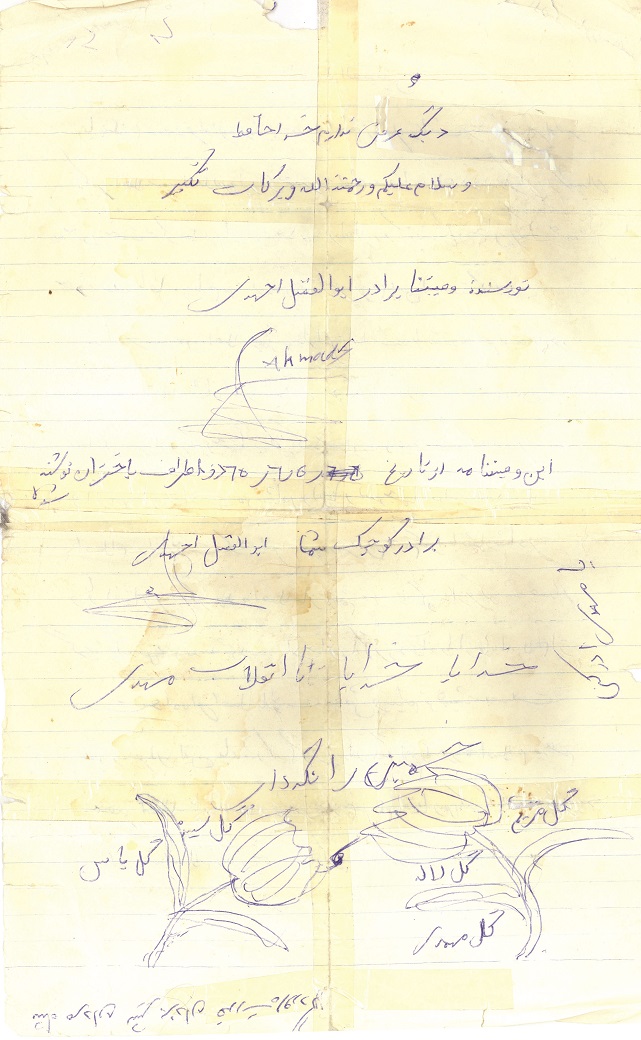 دیگر عرضی ندارم خداحافظ
وسلام علیکم ورحمتنه الله وبرکات تکبیر
نویسندۀ وصیتنا برادر ابوالفضل احمدی
Ahmadi
این وصیتنامه از تاریخ در اطراف باختران نوشته
شده
برادر کوچک شما ابوالفضل احمدی
خدایا خدایا تا انقلاب مهدی
خمینی را نگهدار
گل مریم
گل سرخ
گل یاس
گل لاله
گل مهدی